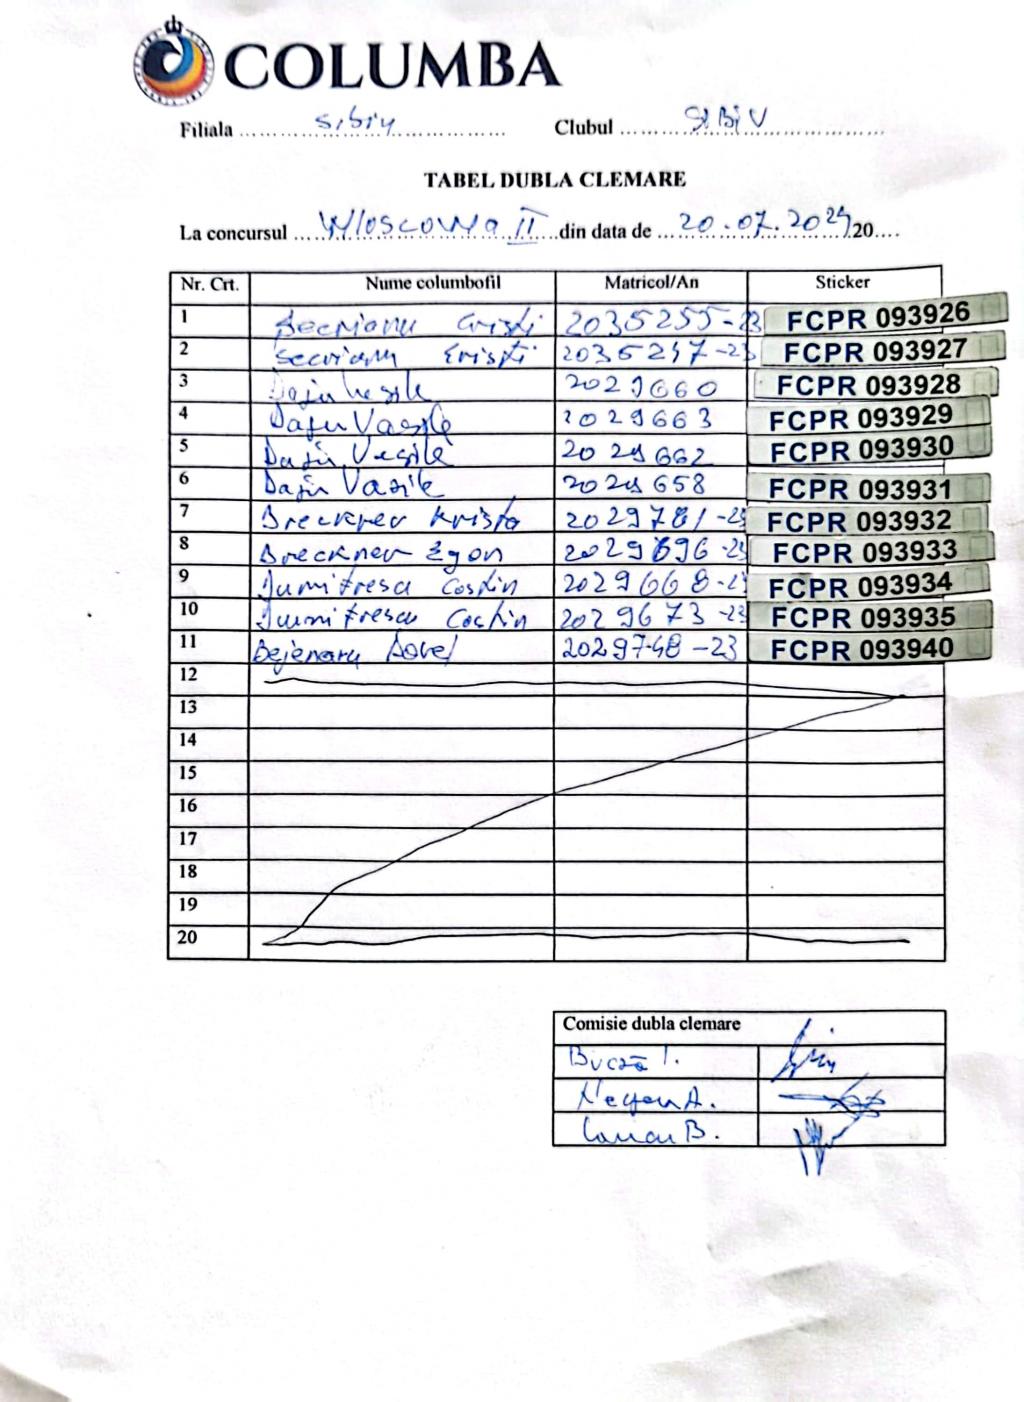 COLUMBA
Filiala ........ Sibiu ........ Clubul ........ SIBIU ........
TABEL DUBLA CLEMARE
La concursul .... Wloscowa II .... din data de .... 20.07.2024 20....
Nr. Crt. Nume columbofil Matricol/An Sticker
1 Secrianu Cristi 2035255-23 FCPR 093926
2 Secrianu Cristi 2035247-23 FCPR 093927
3 Dajiu Vasile 2029660 FCPR 093928
4 Dajiu Vasile 2029663 FCPR 093929
5 Dajiu Vasile 2029662 FCPR 093930
6 Dajiu Vasile 2029658 FCPR 093931
7 Breckner Krista 2029781-23 FCPR 093932
8 Breckner Egon 2029696-23 FCPR 093933
9 Dumitrescu Costin 2029668-23 FCPR 093934
10 Dumitrescu Costin 2029673-23 FCPR 093935
11 Bejenaru Aurel 2029748-23 FCPR 093940
12
13
14
15
16
17
18
19
20
Comisie dubla clemare
Bucză I.
A.
B.